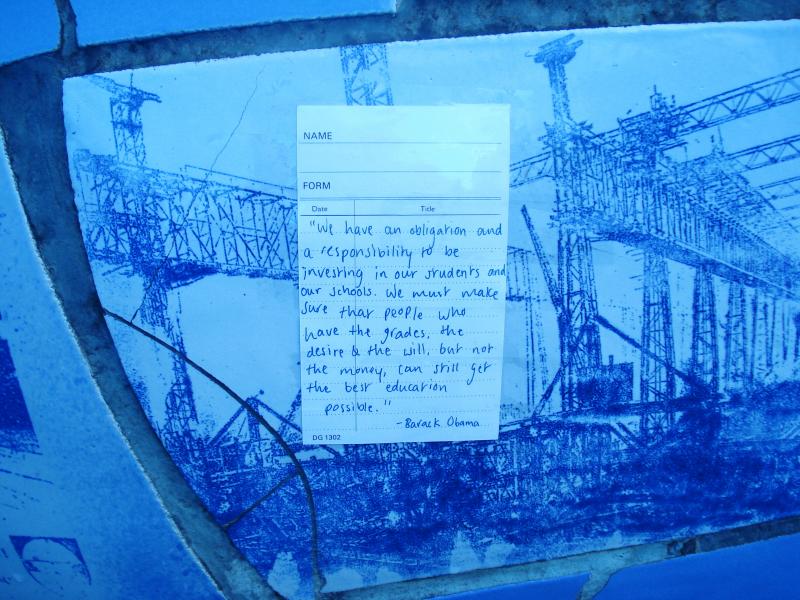 NAME
FORM
Date Title
"We have an obligation and
a responsibility to be
investing in our students and
our schools. We must make
sure that people who
have the grades, the
desire & the will, but not
the money, can still get
the best education
possible."
-Barack Obama
DG 1302